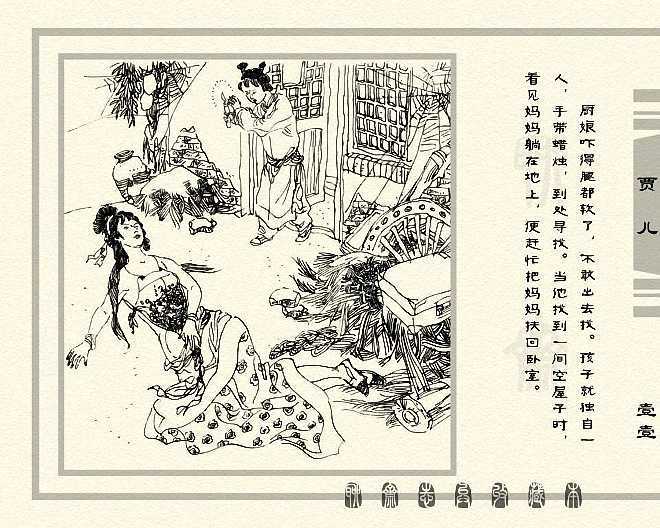 厨娘吓得腿都软了，不敢出去找。孩子就独自一
人，手带蜡烛，到处寻找。当他找到一间空屋子时，
看见妈妈躺在地上，便赶忙把妈妈扶回卧室。
贾儿
壹壹